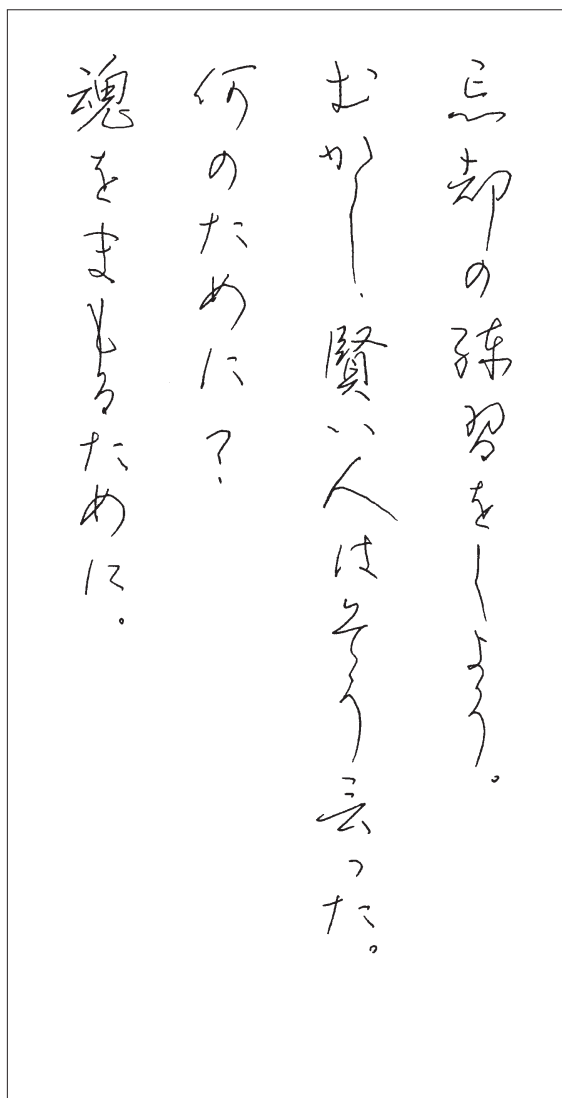 忘却の練習をしよう。
むかし、賢い人はそう言った。
何のために？
魂をまもるために。